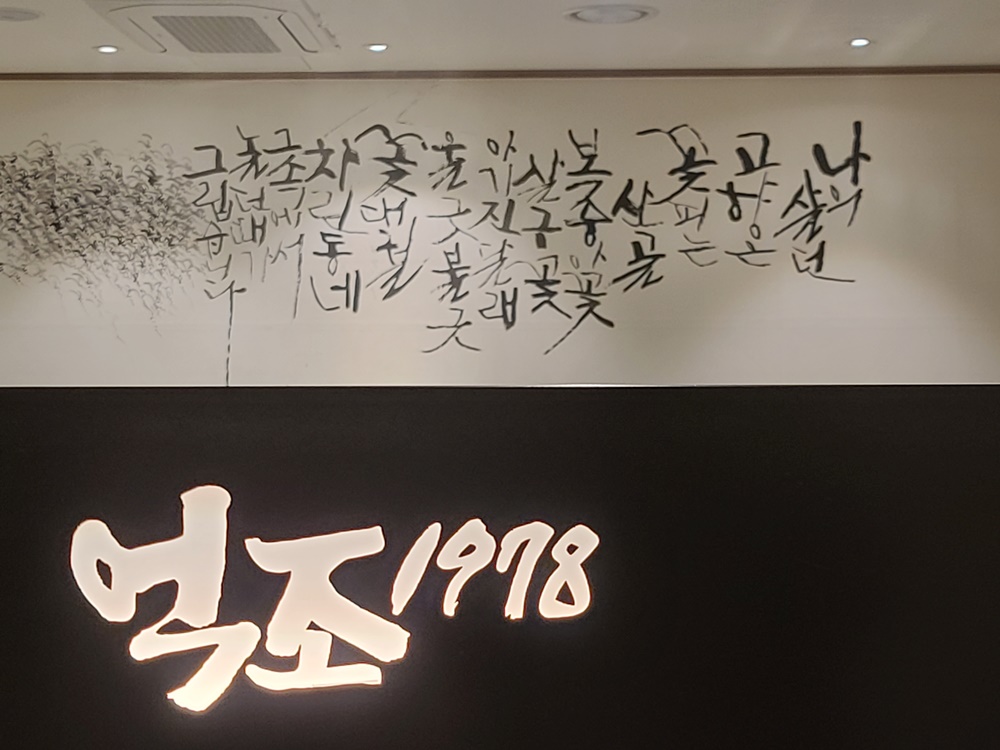 나의
살던
고향은
꽃피는
산골
복숭아꽃
살구꽃
아기진달래
울긋불긋
꽃대궐
차린동네
그속에서
놀던때가
그립습니다
억조1978